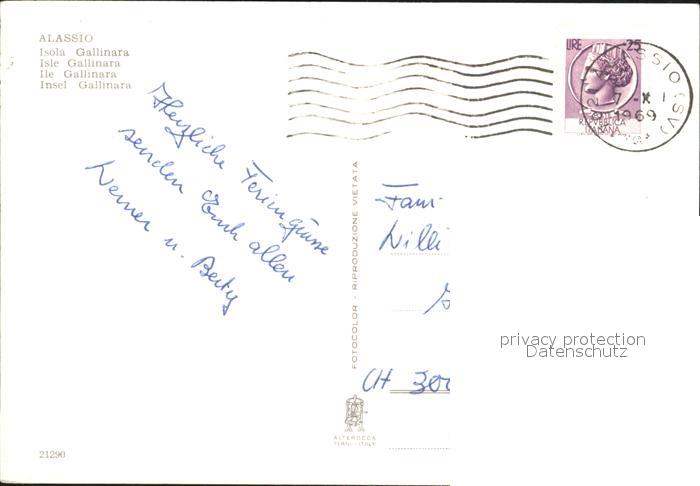 ALASSIO
Isola Gallinara
Isle Gallinara
Ile Gallinara
Insel Gallinara
LIRE 25
REPVBBLICA
ITALIANA
ASSIO (SV)
7-X I
1969
Herzliche Feriengrüsse
senden Euch allen
Werner u. Betty
FOTOCOLOR - RIPRODUZIONE VIETATA
Fam.
Willi
CH 300
privacy protection
Datenschutz
ALTEROCCA
TERNI - ITALY
21290